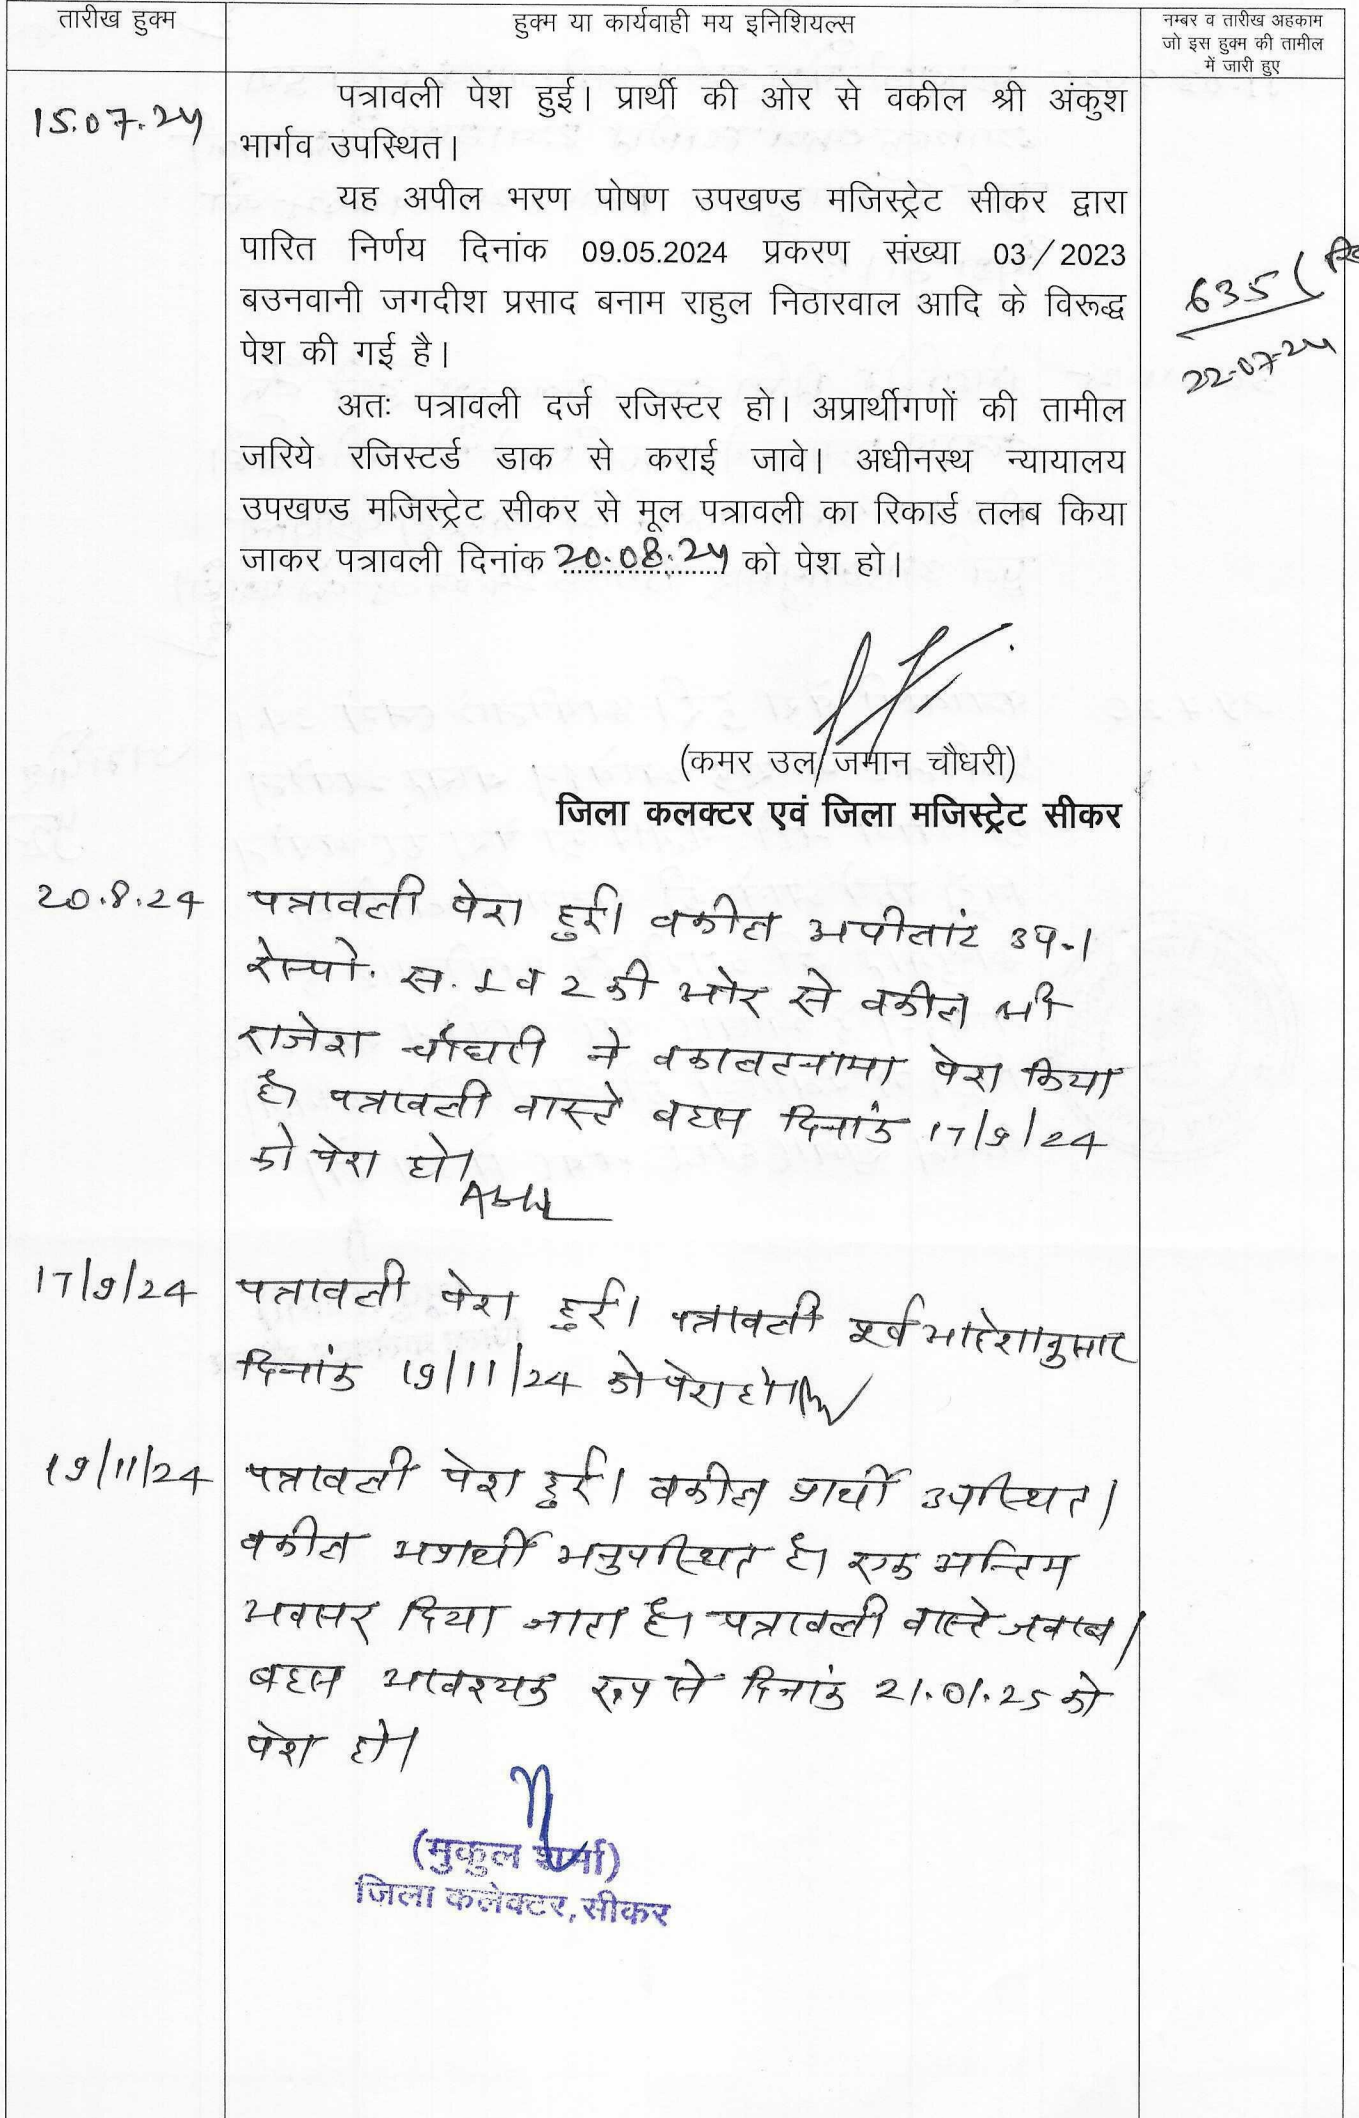 तारीख हुक्म
हुक्म या कार्यवाही मय इनिशियल्स
नम्बर व तारीख अहकाम
जो इस हुक्म की तामील
में जारी हुए
15.07.24
पत्रावली पेश हुई। प्रार्थी की ओर से वकील श्री अंकुश
भार्गव उपस्थित।
यह अपील भरण पोषण उपखण्ड मजिस्ट्रेट सीकर द्वारा
पारित निर्णय दिनांक 09.05.2024 प्रकरण संख्या 03/2023
बउनवानी जगदीश प्रसाद बनाम राहुल निठारवाल आदि के विरूद्ध
पेश की गई है।
6351
22-07-24
अतः पत्रावली दर्ज रजिस्टर हो। अप्रार्थीगणों की तामील
जरिये रजिस्टर्ड डाक से कराई जावे। अधीनस्थ न्यायालय
उपखण्ड मजिस्ट्रेट सीकर से मूल पत्रावली का रिकार्ड तलब किया
जाकर पत्रावली दिनांक 20.08.24 को पेश हो।
(कमर उल जमान चौधरी)
जिला कलक्टर एवं जिला मजिस्ट्रेट सीकर
20.8.24
पत्रावली पेश हुई। वकील अपीलांट उप.।
रेस्पो. स. 1 व 2 की ओर से वकील श्री
राजेश चौधरी ने वकालतनामा पेश किया
है। पत्रावली वास्ते बहस दिनांक 17/9/24
को पेश हो।
17/9/24
पत्रावली पेश हुई। पत्रावली पूर्व आदेशानुसार
दिनांक 19/11/24 को पेश हो।
19/11/24
पत्रावली पेश हुई। वकील प्रार्थी उपस्थित।
वकील अप्रार्थी अनुपस्थित है। एक अन्तिम
अवसर दिया जाता है। पत्रावली वास्ते जवाब/
बहस आवश्यक रूप से दिनांक 21.01.25 को
पेश हो।
(मुकुल शर्मा)
जिला कलेक्टर, सीकर